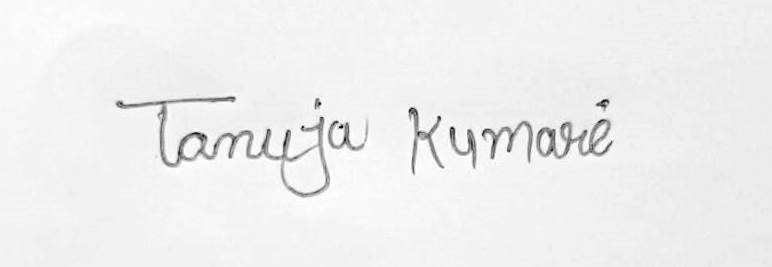 Tanuja Kumari